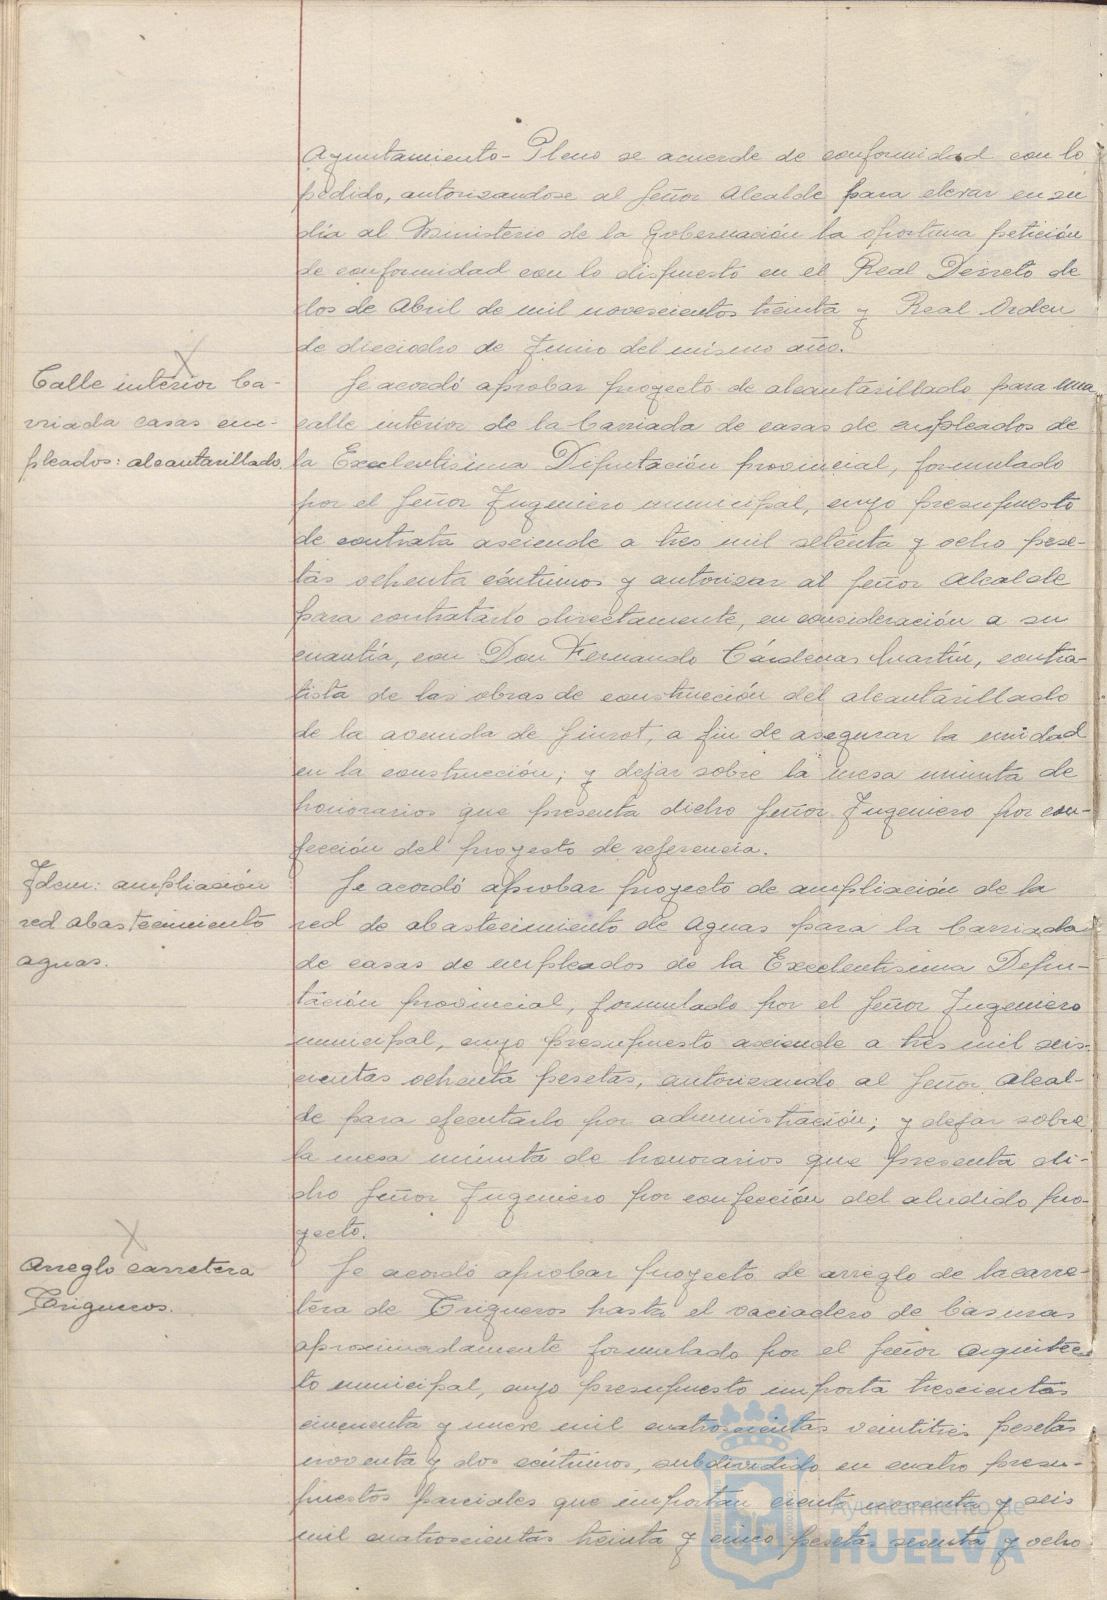 Ayuntamiento-Pleno se acuerde de conformidad con lo
pedido, autorizandose al Señor Alcalde para elevar en su
día al Ministerio de la Gobernación la oportuna petición
de conformidad con lo dispuesto en el Real Decreto de
dos de Abril de mil novescientos treinta y Real Orden
de dieciocho de Junio del mismo año.
Calle interior ba-
rriada casas em-
pleados: alcantarillado
Se acordó aprobar proyecto de alcantarillado para una
calle interior de la barriada de casas de empleados de
la Excelentisima Diputación provincial, formulado
por el Señor Ingeniero municipal, cuyo presupuesto
de contrata asciende a tres mil setenta y ocho pese-
tas ochenta céntimos y autorizar al Señor Alcalde
para contratarlo directamente, en consideración a su
cuantía, con Don Fernando Cárdenas Martín, contra-
tista de las obras de construcción del alcantarillado
de la avenida de Siurot, a fin de asegurar la unidad
en la construcción; y dejar sobre la mesa minuta de
honorarios que presenta dicho Señor Ingeniero por con-
fección del proyecto de referencia.
Idem: ampliación
red abastecimiento
aguas.
Se acordó aprobar proyecto de ampliación de la
red de abastecimiento de aguas para la barriada
de casas de empleados de la Excelentisima Dipu-
tación provincial, formulado por el Señor Ingeniero
municipal, cuyo presupuesto asciende a tres mil seis-
cientas ochenta pesetas, autorizando al Señor Alcal-
de para ejecutarlo por administración; y dejar sobre
la mesa minuta de honorarios que presenta di-
cho Señor Ingeniero por confección del aludido pro-
yecto.
Arreglo carretera
Trigueros.
Se acordó aprobar proyecto de arreglo de la carre-
tera de Trigueros hasta el vaciadero de basuras
aproximadamente formulado por el Señor Arquitec-
to municipal, cuyo presupuesto importa trescientas
cincuenta y nueve mil cuatroscientas veintitrés pesetas
noventa y dos céntimos, subdividido en cuatro presu-
puestos parciales que importan ciento noventa y seis
mil cuatroscientas treinta y cinco pesetas sesenta y ocho
Ayuntamiento de
HUELVA